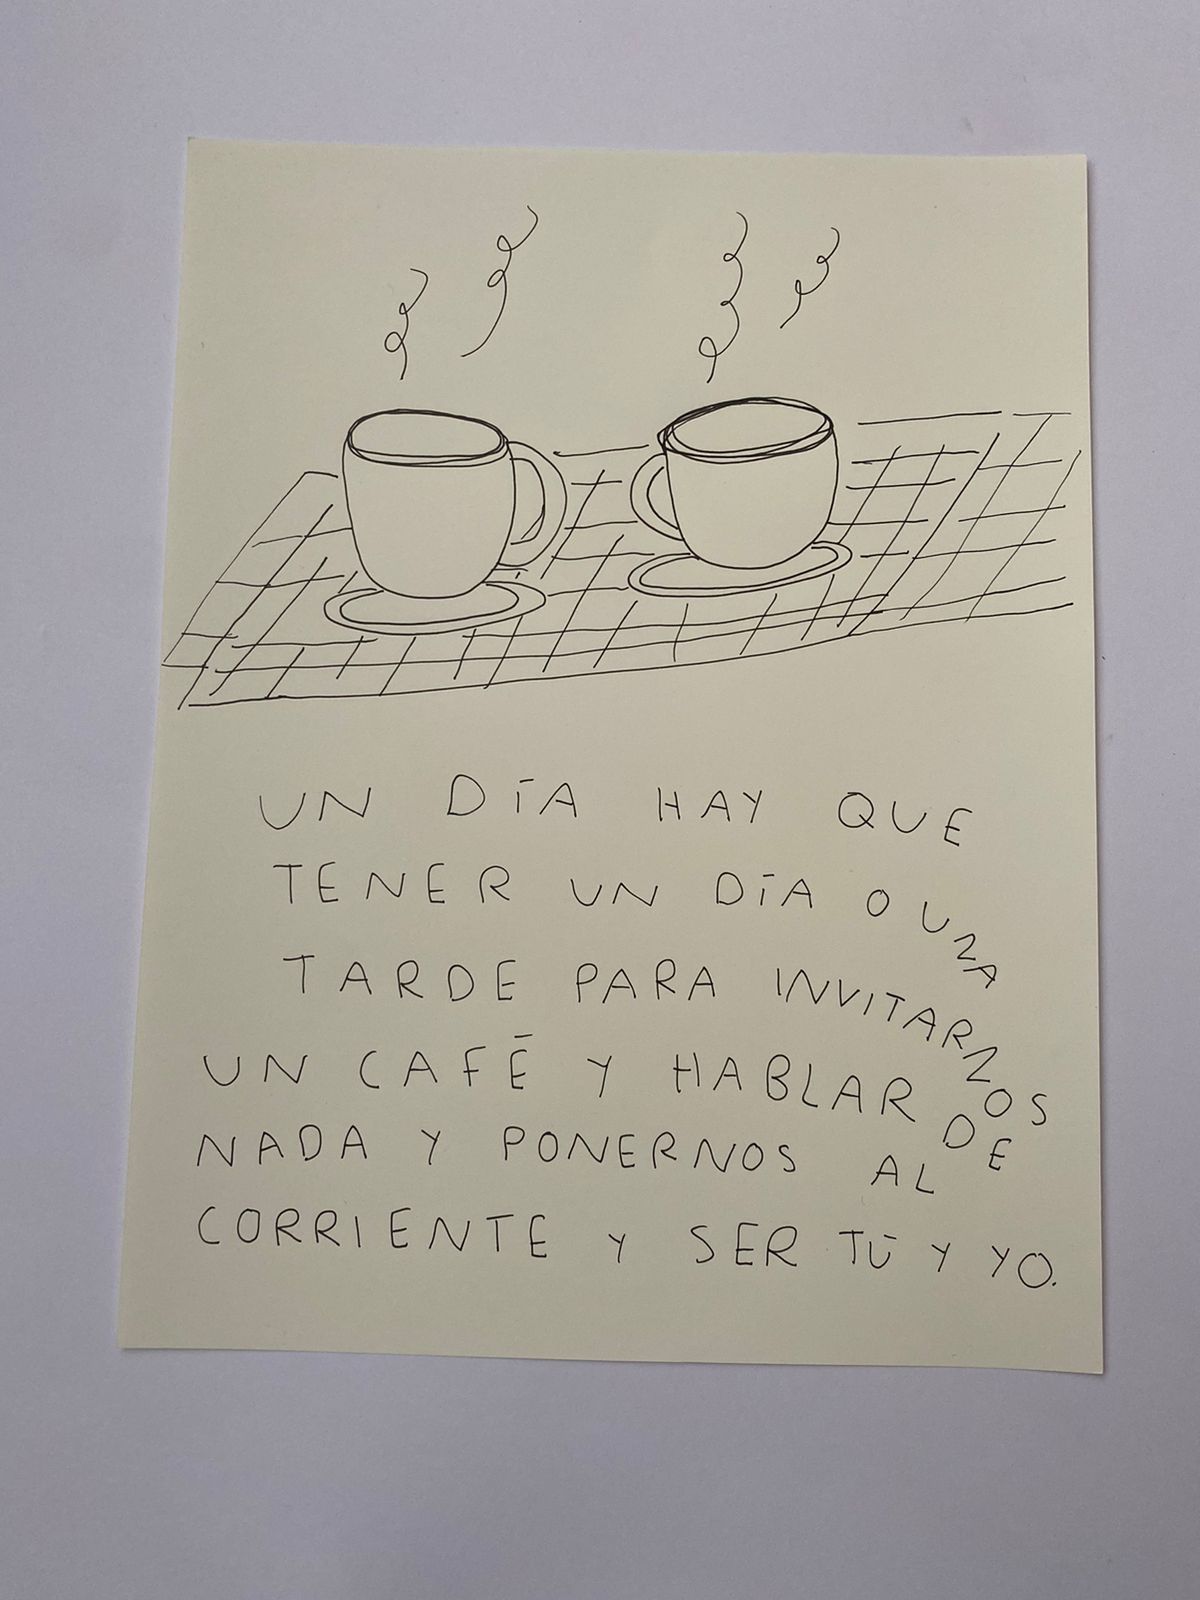 UN DÍA HAY QUE
TENER UN DÍA O UNA
TARDE PARA INVITARNOS
UN CAFÉ Y HABLAR DE
NADA Y PONERNOS AL
CORRIENTE Y SER TÚ Y YO.